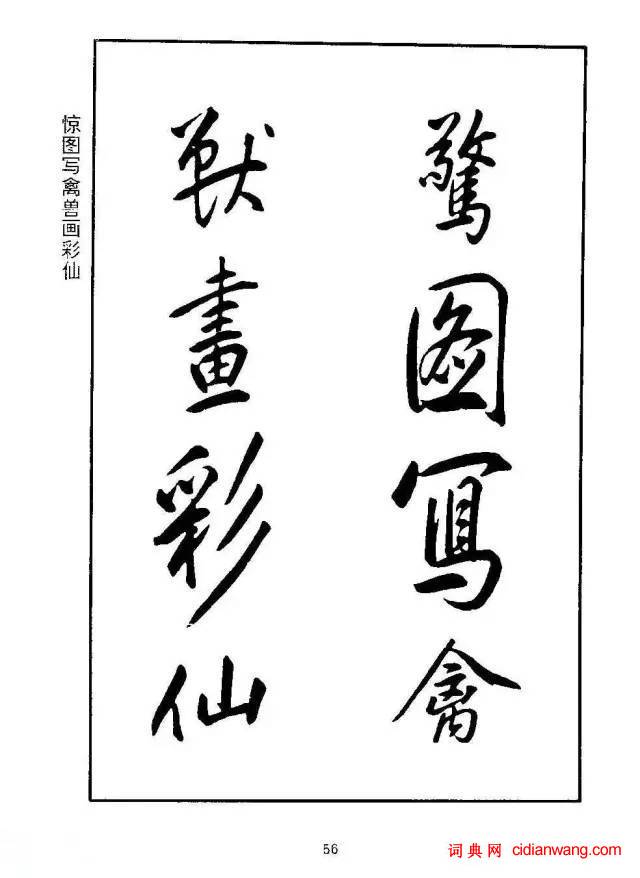 驚图寫禽
獸畫彩仙
惊图写禽兽画彩仙
56
词典网 cidianwang.com